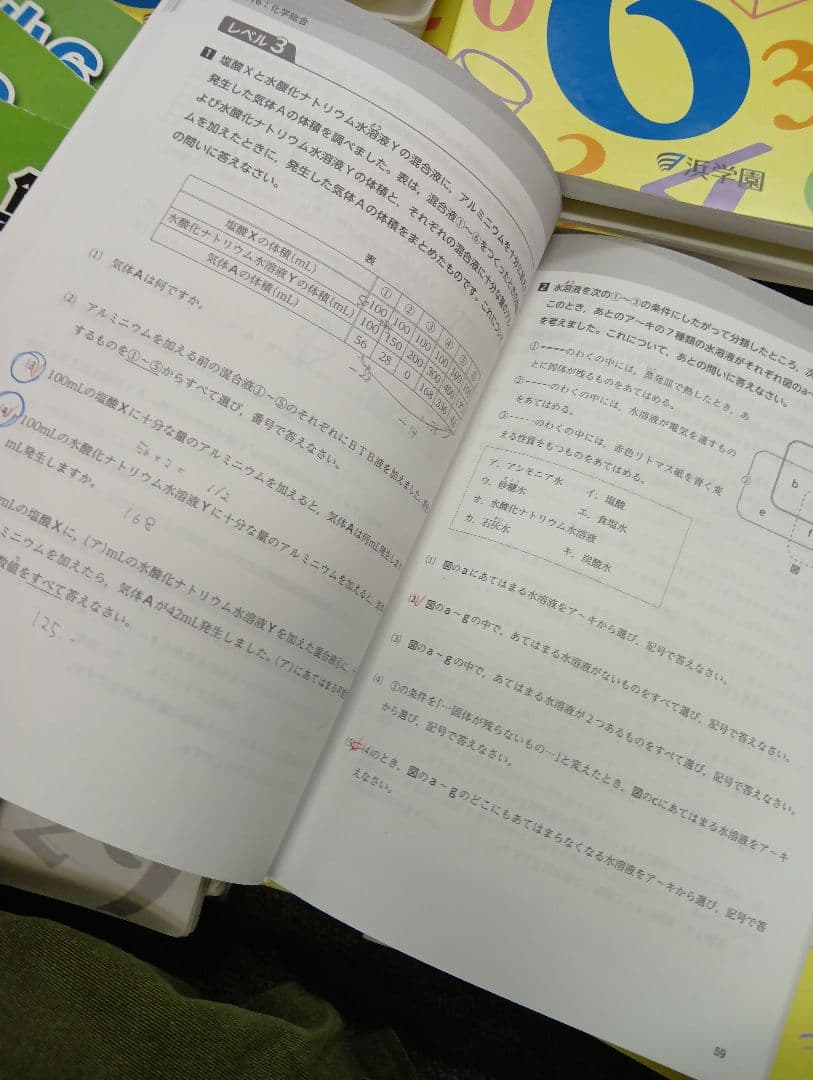 6
3
浜学園
16：化学総合
レベル3
1 塩酸Xと水酸化ナトリウム水溶液Yの混合液に，アルミニウムを十分に加え
発生した気体Aの体積を調べました。表は，混合液①～⑥をつくったときの
よび水酸化ナトリウム水溶液Yの体積と，それぞれの混合液に十分な量のア
ムを加えたときに，発生した気体Aの体積をまとめたものです。これについ
の問いに答えなさい。
表
① ② ③ ④ ⑤ ⑥
塩酸Xの体積(mL) 100 100 100 100 100 100
水酸化ナトリウム水溶液Yの体積(mL) 100 150 200 300 400
気体Aの体積(mL) 56 28 0 168 336
-14
(1) 気体Aは何ですか。
(2) アルミニウムを加える前の混合液①～⑤のそれぞれにBTB液を加えました。
するものを①～⑤からすべて選び，番号で答えなさい。
(3) 100mLの塩酸Xに十分な量のアルミニウムを加えると，気体Aは何mL発生しま
56×2= 112
100mLの水酸化ナトリウム水溶液Yに十分な量のアルミニウムを加えると，
mL発生しますか。
168
mLの塩酸Xに，(ア)mLの水酸化ナトリウム水溶液Yを加えた混合液に，
ミニウムを加えたら，気体Aが42mL発生しました。(ア)にあてはまる
数値をすべて答えなさい。
125
2 水溶液を次の①～③の条件にしたがって分類したところ，次
このとき，あとのア～キの7種類の水溶液がそれぞれ図のa～
を考えました。これについて，あとの問いに答えなさい。
①-----のわくの中には，蒸発皿で熱したとき，あ
とに固体が残るものをあてはめる。
②-----のわくの中には，水溶液が電気を通すもの
をあてはめる。
③-----のわくの中には，赤色リトマス紙を青く変
える性質をもつものをあてはめる。
ア．アンモニア水 イ．塩酸
ウ．砂糖水 エ．食塩水
オ．水酸化ナトリウム水溶液
カ．石灰水 キ．炭酸水
b
e
f
図
(1) 図のaにあてはまる水溶液をア～キから選び，記号で答えなさい。
(2) 図のa～gの中で，あてはまる水溶液がないものをすべて選び，記号で答えなさい。
(3) 図のa～gの中で，あてはまる水溶液が2つあるものをすべて選び，記号で答えなさい。
(4) ①の条件を「…固体が残らないもの…」と変えたとき，図のcにあてはまる水溶液をア～キ
から選び，記号で答えなさい。
(5) (4)のとき，図のa～gのどこにもあてはまらなくなる水溶液をア～キから選び，記号で答
えなさい。
59